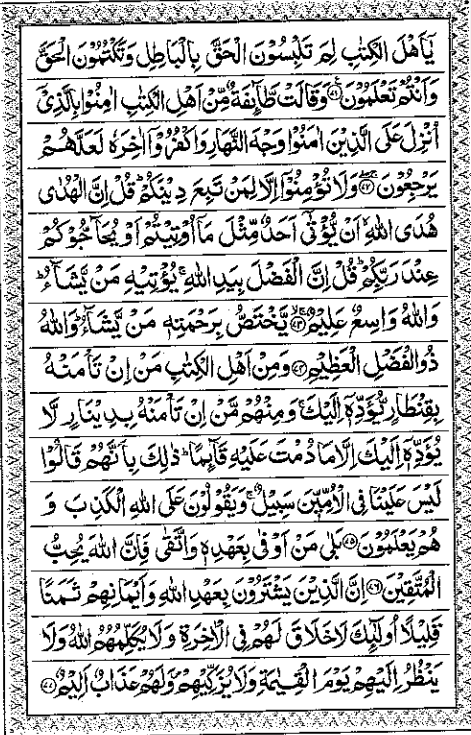 يٰٓاَهْلَ الْكِتٰبِ لِمَ تَلْبِسُوْنَ الْحَقَّ بِالْبَاطِلِ وَتَكْتُمُوْنَ الْحَقَّ
وَاَنْتُمْ تَعْلَمُوْنَ ۝۷۱ وَقَالَتْ طَّآئِفَةٌ مِّنْ اَهْلِ الْكِتٰبِ اٰمِنُوْا بِالَّذِيْٓ
اُنْزِلَ عَلَى الَّذِيْنَ اٰمَنُوْا وَجْهَ النَّهَارِ وَاكْفُرُوْٓا اٰخِرَهٗ لَعَلَّهُمْ
يَرْجِعُوْنَ ۝۷۲ وَلَا تُؤْمِنُوْٓا اِلَّا لِمَنْ تَبِعَ دِيْنَكُمْ ؕ قُلْ اِنَّ الْهُدٰى
هُدَى اللّٰهِ ۙ اَنْ يُّؤْتٰٓى اَحَدٌ مِّثْلَ مَآ اُوْتِيْتُمْ اَوْ يُحَآجُّوْكُمْ
عِنْدَ رَبِّكُمْ ؕ قُلْ اِنَّ الْفَضْلَ بِيَدِ اللّٰهِ ۚ يُؤْتِيْهِ مَنْ يَّشَآءُ ؕ
وَاللّٰهُ وَاسِعٌ عَلِيْمٌ ۝۷۳ يَّخْتَصُّ بِرَحْمَتِهٖ مَنْ يَّشَآءُ ؕ وَاللّٰهُ
ذُو الْفَضْلِ الْعَظِيْمِ ۝۷۴ وَمِنْ اَهْلِ الْكِتٰبِ مَنْ اِنْ تَاْمَنْهُ
بِقِنْطَارٍ يُّؤَدِّهٖٓ اِلَيْكَ ۚ وَمِنْهُمْ مَّنْ اِنْ تَاْمَنْهُ بِدِيْنَارٍ لَّا
يُؤَدِّهٖٓ اِلَيْكَ اِلَّا مَا دُمْتَ عَلَيْهِ قَآئِمًا ؕ ذٰلِكَ بِاَنَّهُمْ قَالُوْا
لَيْسَ عَلَيْنَا فِي الْاُمِّيّٖنَ سَبِيْلٌ ۚ وَيَقُوْلُوْنَ عَلَى اللّٰهِ الْكَذِبَ وَ
هُمْ يَعْلَمُوْنَ ۝۷۵ بَلٰى مَنْ اَوْفٰى بِعَهْدِهٖ وَاتَّقٰى فَاِنَّ اللّٰهَ يُحِبُّ
الْمُتَّقِيْنَ ۝۷۶ اِنَّ الَّذِيْنَ يَشْتَرُوْنَ بِعَهْدِ اللّٰهِ وَاَيْمَانِهِمْ ثَمَنًا
قَلِيْلًا اُولٰٓئِكَ لَا خَلَاقَ لَهُمْ فِي الْاٰخِرَةِ وَلَا يُكَلِّمُهُمُ اللّٰهُ وَلَا
يَنْظُرُ اِلَيْهِمْ يَوْمَ الْقِيٰمَةِ وَلَا يُزَكِّيْهِمْ ۪ وَلَهُمْ عَذَابٌ اَلِيْمٌ ۝۷۷